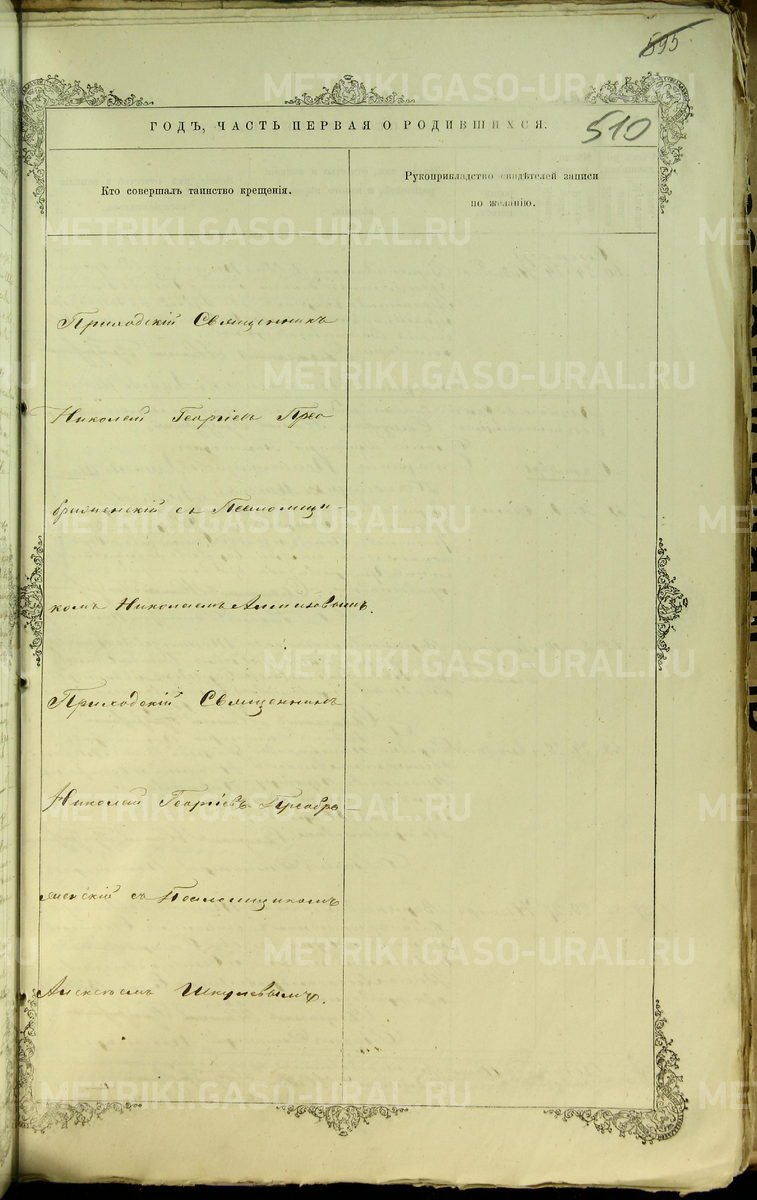 595
510
ГОДЪ, ЧАСТЬ ПЕРВАЯ О РОДИВШИХСЯ.
Кто совершалъ таинство крещенія.
Рукоприкладство свидѣтелей записи
по желанію.
Приходскій Священникъ
Николай Георгіевъ Прео
браженскій съ Псаломщи-
комъ Николаемъ
Приходскій Священникъ
Николай Георгіевъ Преобра-
женскій съ Псаломщикомъ
Алексѣемъ Шкулевымъ.
METRIKI.GASO-URAL.RU